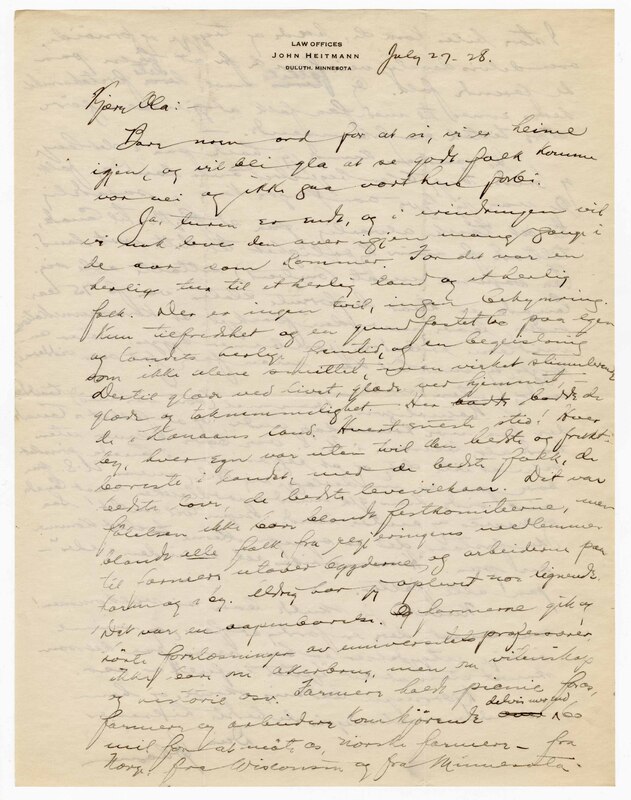 LAW OFFICES
JOHN HEITMANN
DULUTH, MINNESOTA
July 27 - 28.
Kjære Ola: -
Bare noen ord for at si, vi er heime
igjen, og vil bli gla at se godt folk komme
vor vei og ikke gaa vort hus forbi.
Ja, turen er endt, og i erindringen vil
vi nok leve den over igjen mang gang i
de aar som kommer. For det var en
herlig tur til et herlig land og et herlig
folk. Der er ingen tvil, ingen bekymring.
Kun tilfredshet og en grundfæstet tro paa egen
og landets herlige fremtid, og en begeistring
som ikke alene smittet, men virket stimulerende
Dertil glæde ved livet, glæde ved hjemmet,
glæde og taknemmelighet. Der bodde de
de i Kanaans land. Hvert eneste sted! Hver
by, hver egn var uten tvil den bedste og frukt-
bareste i landet, med de bedste folk, de
bedste love, de bedste levevilkaar. Det var
følelsen ikke bare blandt festkomiteerne, men
blandt alle folk, fra regjeringens medlemmer
til farmere utover bygderne og arbeiderne paa
farm og veg. Aldrig har jeg oplevet noe lignende.
Det var en aapenbarelse. Og farmerne gik og
hørte forelæsninger av universitets professorer
ikke bare om akerbrug, men om vitenskap
og historie osv. Farmere holdt picnic for os,
farmere og arbeidere kom kjørende delvis over 100
mil for at møte os, norske farmere - fra
Norge, fra Wisconsin og fra Minnesota.